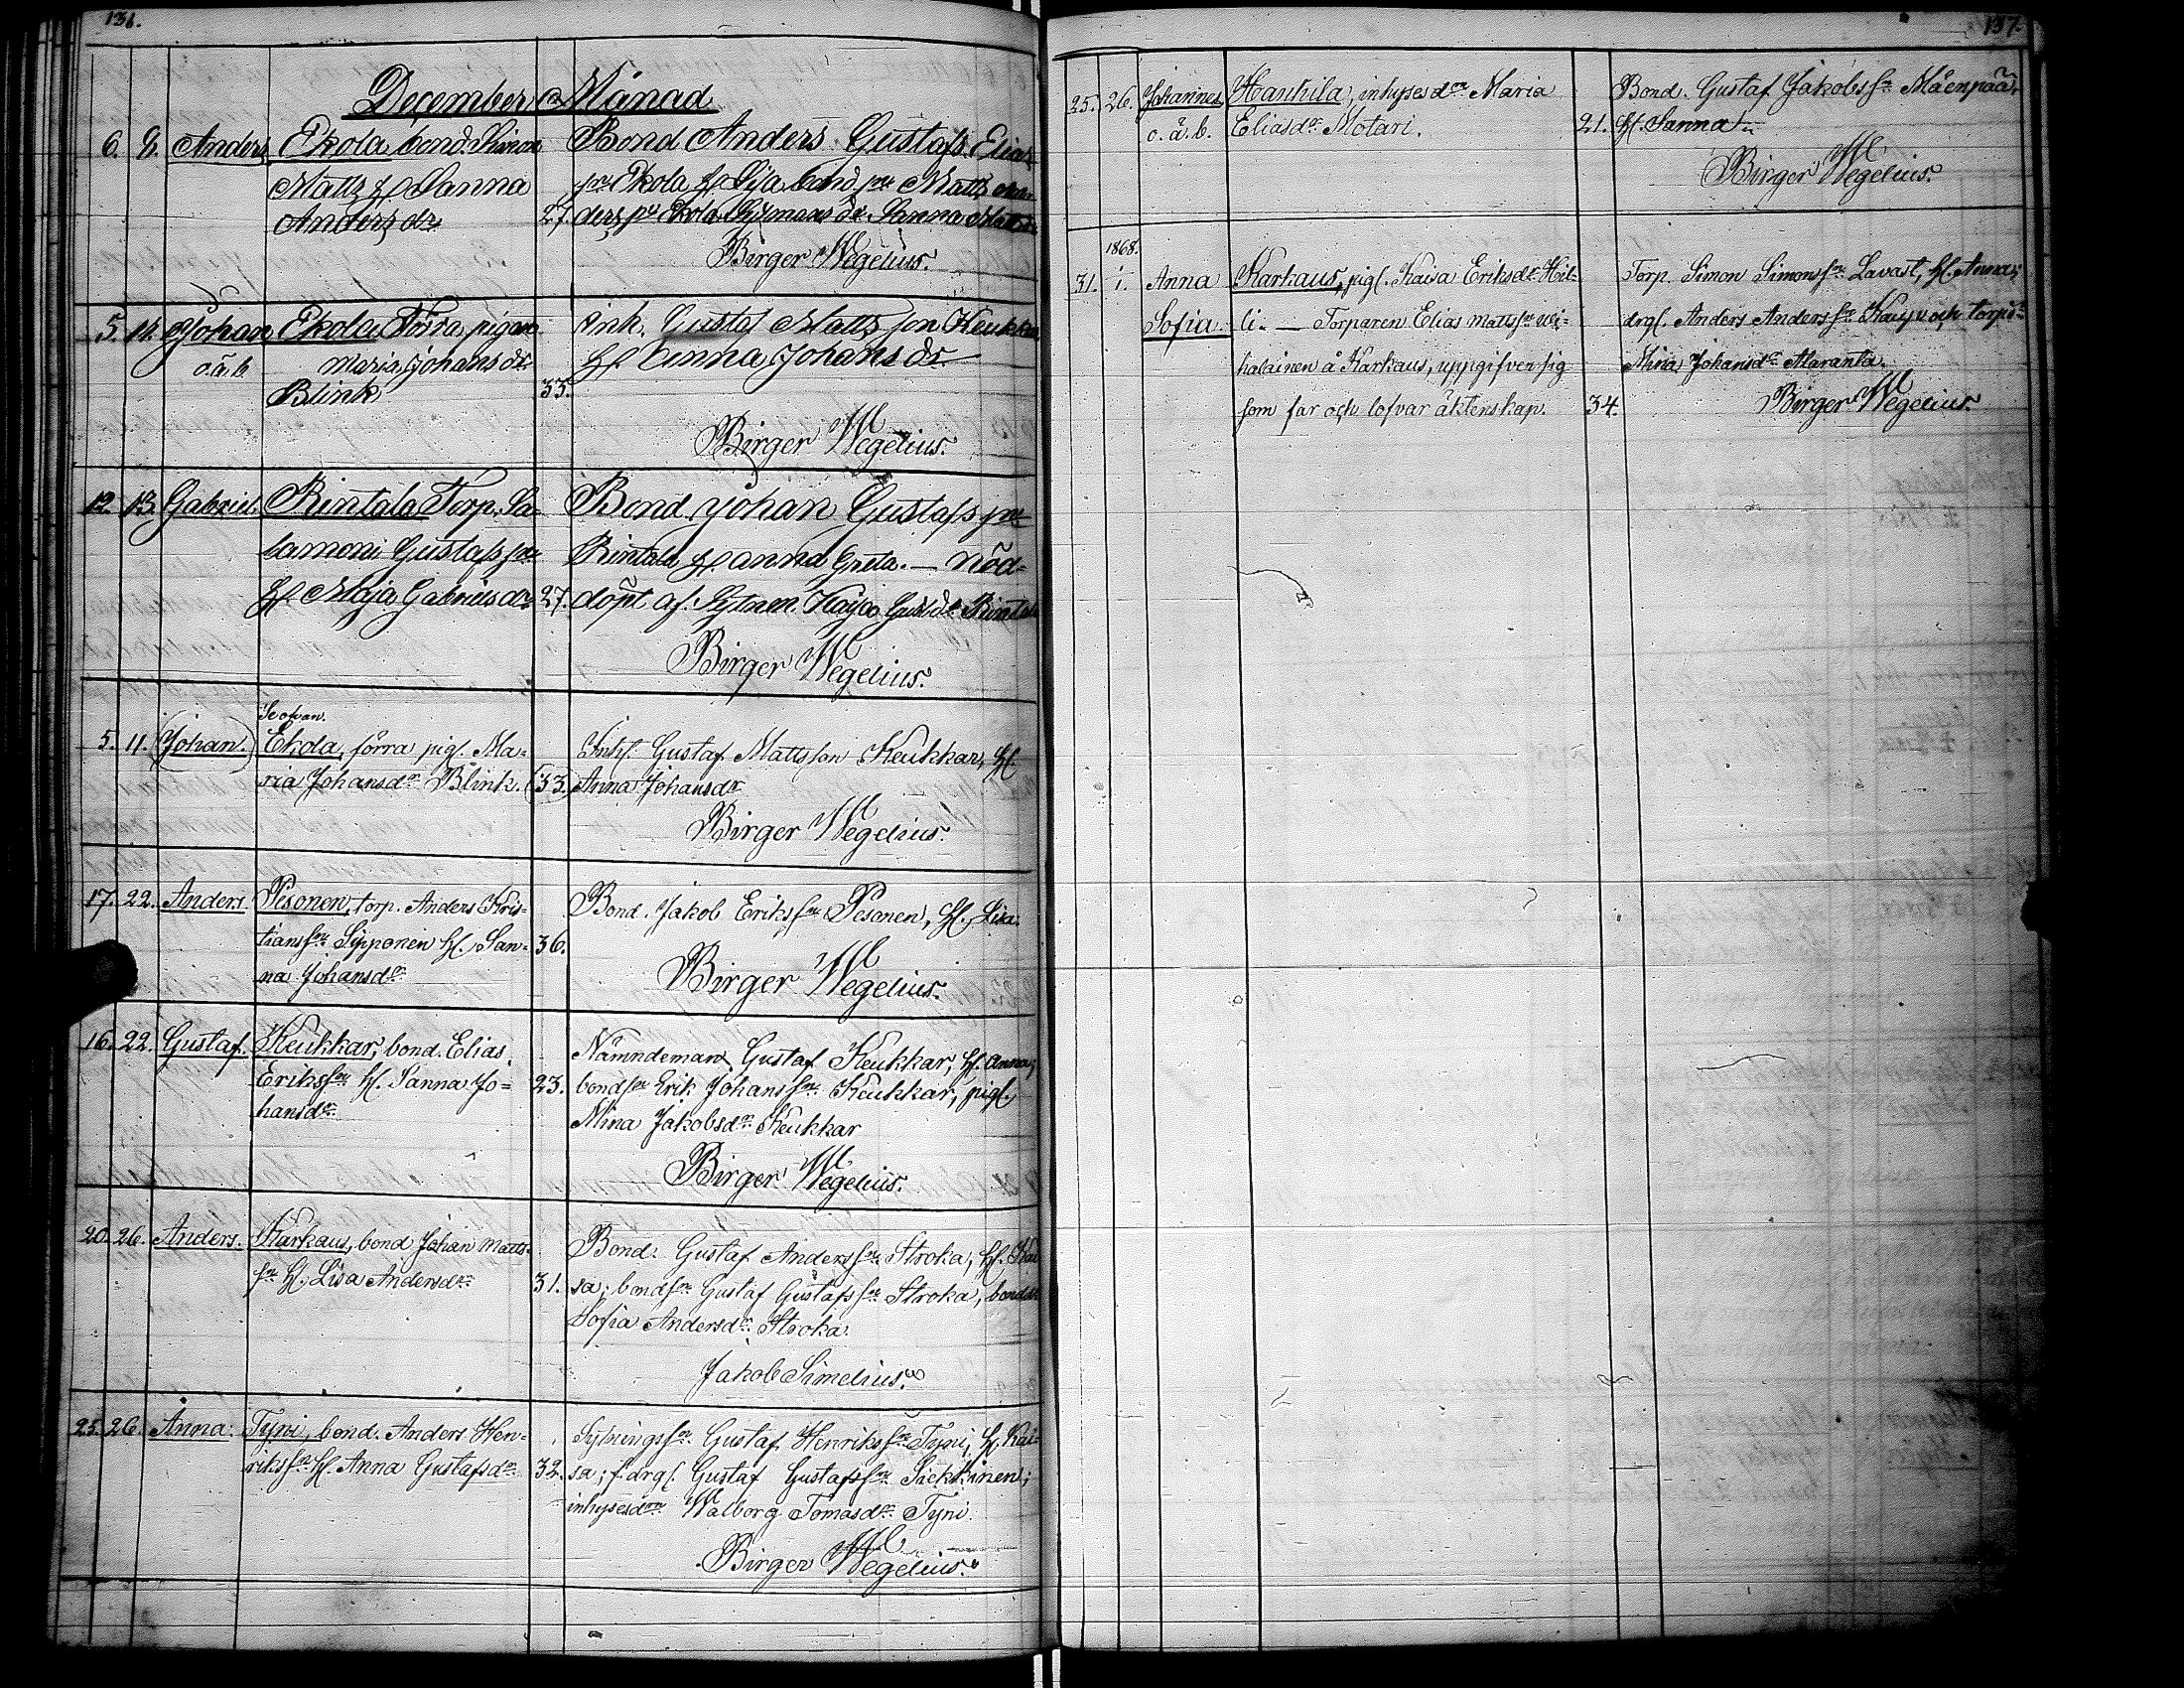 136.
December Månad
6. 8. Anders Ekola bond. Simon
Matts H. Sanna
Anders dr 27.
Bond Anders Gustafs Elias
sn Ekola H Lisa bond sn Matts An-
ders sn Ekola Sanna Matts dr
Birger Wegelius.
5. 11. Johan Ekola Förra pigan
o.ä.b. Maria Johans dr
Blink 33.
Ink. Gustaf Matts son Keukkar
H. Anna Johans dr
Birger Wegelius.
12. 13. Gabriel. Rintala Torp. Sa-
lamoni Gustafs sn
H. Maja Gabriels dr 27.
Bond. Johan Gustafs sn
Rintala H Anna Greta. — Nöd-
döpt af Rintala
Birger Wegelius.
5. 11. (Johan.) Ekola, förra pig. Ma-
ria Johansdr Blink. (33.)
Inh. Gustaf Mattsson Keukkar, H.
Anna Johansdr
Birger Wegelius.
17. 22. Anders. Pesonen, torp. Anders Kris-
tianssn Sipponen H. San- 36.
na Johansdr
Bond. Jakob Erikssn Pesonen, H. Lisa.
Birger Wegelius.
16. 22. Gustaf. Keukkar, bond. Elias
Erikssn H. Sanna Jo- 23.
hansdr
Nämndeman Gustaf Keukkar, H. Anna;
bondsn Erik Johanssn Keukkar, pig.
Mina Jakobsdr Keukkar
Birger Wegelius.
20. 26. Anders. Karhaus, bond Johan Matts-
sn H. Lisa Andersdr 31.
Bond. Gustaf Anderssn Stroka, H. Kai
sa; bondsn Gustaf Gustafssn Stroka, bonddr
Sofia Andersdr Stroka.
Jakob Simelius.
25. 26. Anna. Tyni, bond. Anders Hen-
rikssn H. Anna Gustafsdr 32.
Sytningssn Gustaf Henrikssn Tyni, H. Kai-
sa; f. drg. Gustaf Gustafssn Säckkinen;
inhysesdrn Walborg Tomasdr Tyni.
Birger Wegelius.
137.
25. 26. Johannes Hanhila, inhysesdrn Maria
o. ä. b. Eliasdr Motari. 21.
Bond. Gustaf Jakobssn Mäenpää,
H. Sanna
Birger Wegelius.
1868.
31. 1. Anna Karhaus, pig. Kaisa Eriksdr Hil-
Sofia. li. — Torparen Elias Mattssn Wii-
halainen å Karhaus, uppgifver sig
som far och lofvar äktenskap. 34.
Torp. Simon Simonssn Lavast, H. Anna;
drg. Anders Anderssn och torpdr
Mina Johansdr Maranta.
Birger Wegelius.